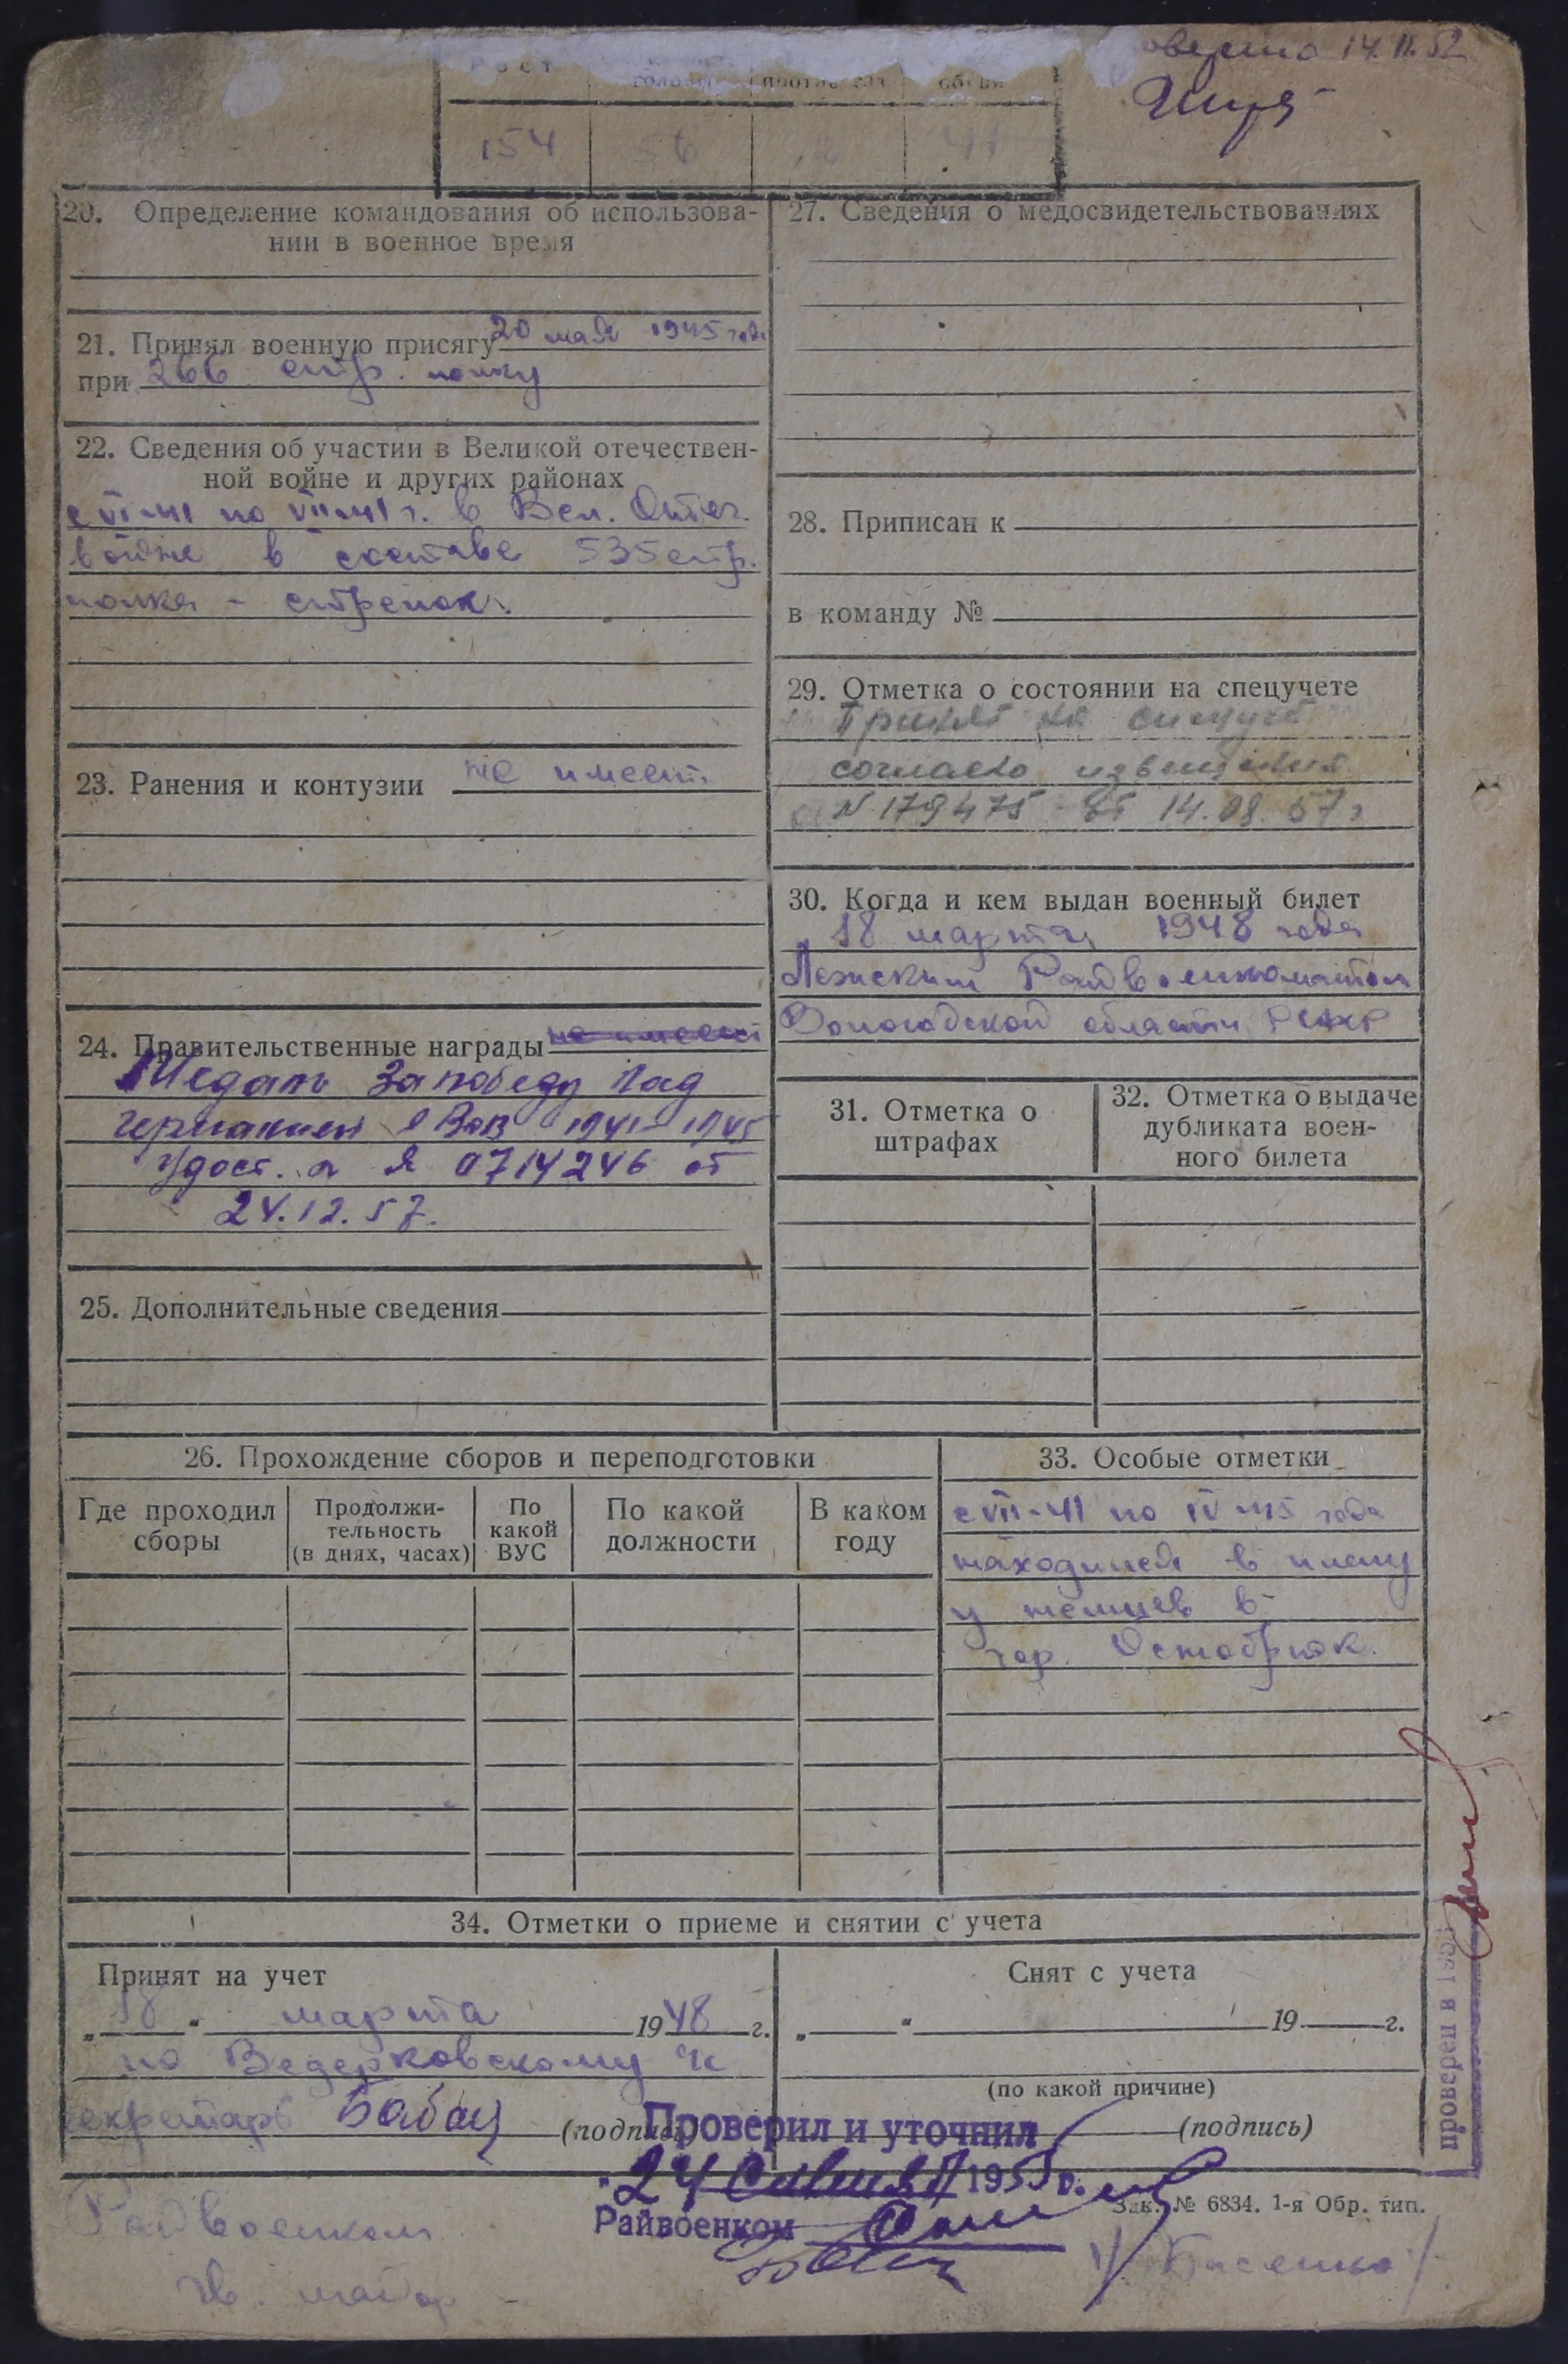 14.II.52
Рост
154 56 2 41
20. Определение командования об использова-
нии в военное время
21. Принял военную присягу 20 мая 1945 года
при 266 стр. полку
22. Сведения об участии в Великой отечествен-
ной войне и других районах
с VI-41 по VII-41 г. в Вел. Отеч.
войне в составе 535 стр.
полка - стрелок.
23. Ранения и контузии не имеет.
24. Правительственные награды не имеет
Медаль За победу над
Германией в ВОВ 1941-1945
Удост. Я 0714246 от
24.12.57.
25. Дополнительные сведения
27. Сведения о медосвидетельствованиях
28. Приписан к
в команду №
29. Отметка о состоянии на спецучете
Принят на спецучет
согласно извещения
N 179475 от 14.08.57 г
30. Когда и кем выдан военный билет
18 марта 1948 года
Лежским Райвоенкоматом
Вологодской области РСФСР
31. Отметка о
штрафах
32. Отметка о выдаче
дубликата воен-
ного билета
26. Прохождение сборов и переподготовки
Где проходил
сборы
Продолжи-
тельность
(в днях, часах)
По
какой
ВУС
По какой
должности
В каком
году
33. Особые отметки
с VII-41 по IV-45 года
находился в плену
у немцев в
гор.
34. Отметки о приеме и снятии с учета
Принят на учет
„18“ марта 1948 г.
по Ведерковскому
секретарь (подпись)
Снят с учета
„ “ 19 г.
(по какой причине)
(подпись)
Проверил и уточнил
„24 195 г.
Райвоенком
Зак. № 6834. 1-я Обр. тип.
Райвоенком
гв. майор
проверен в 195